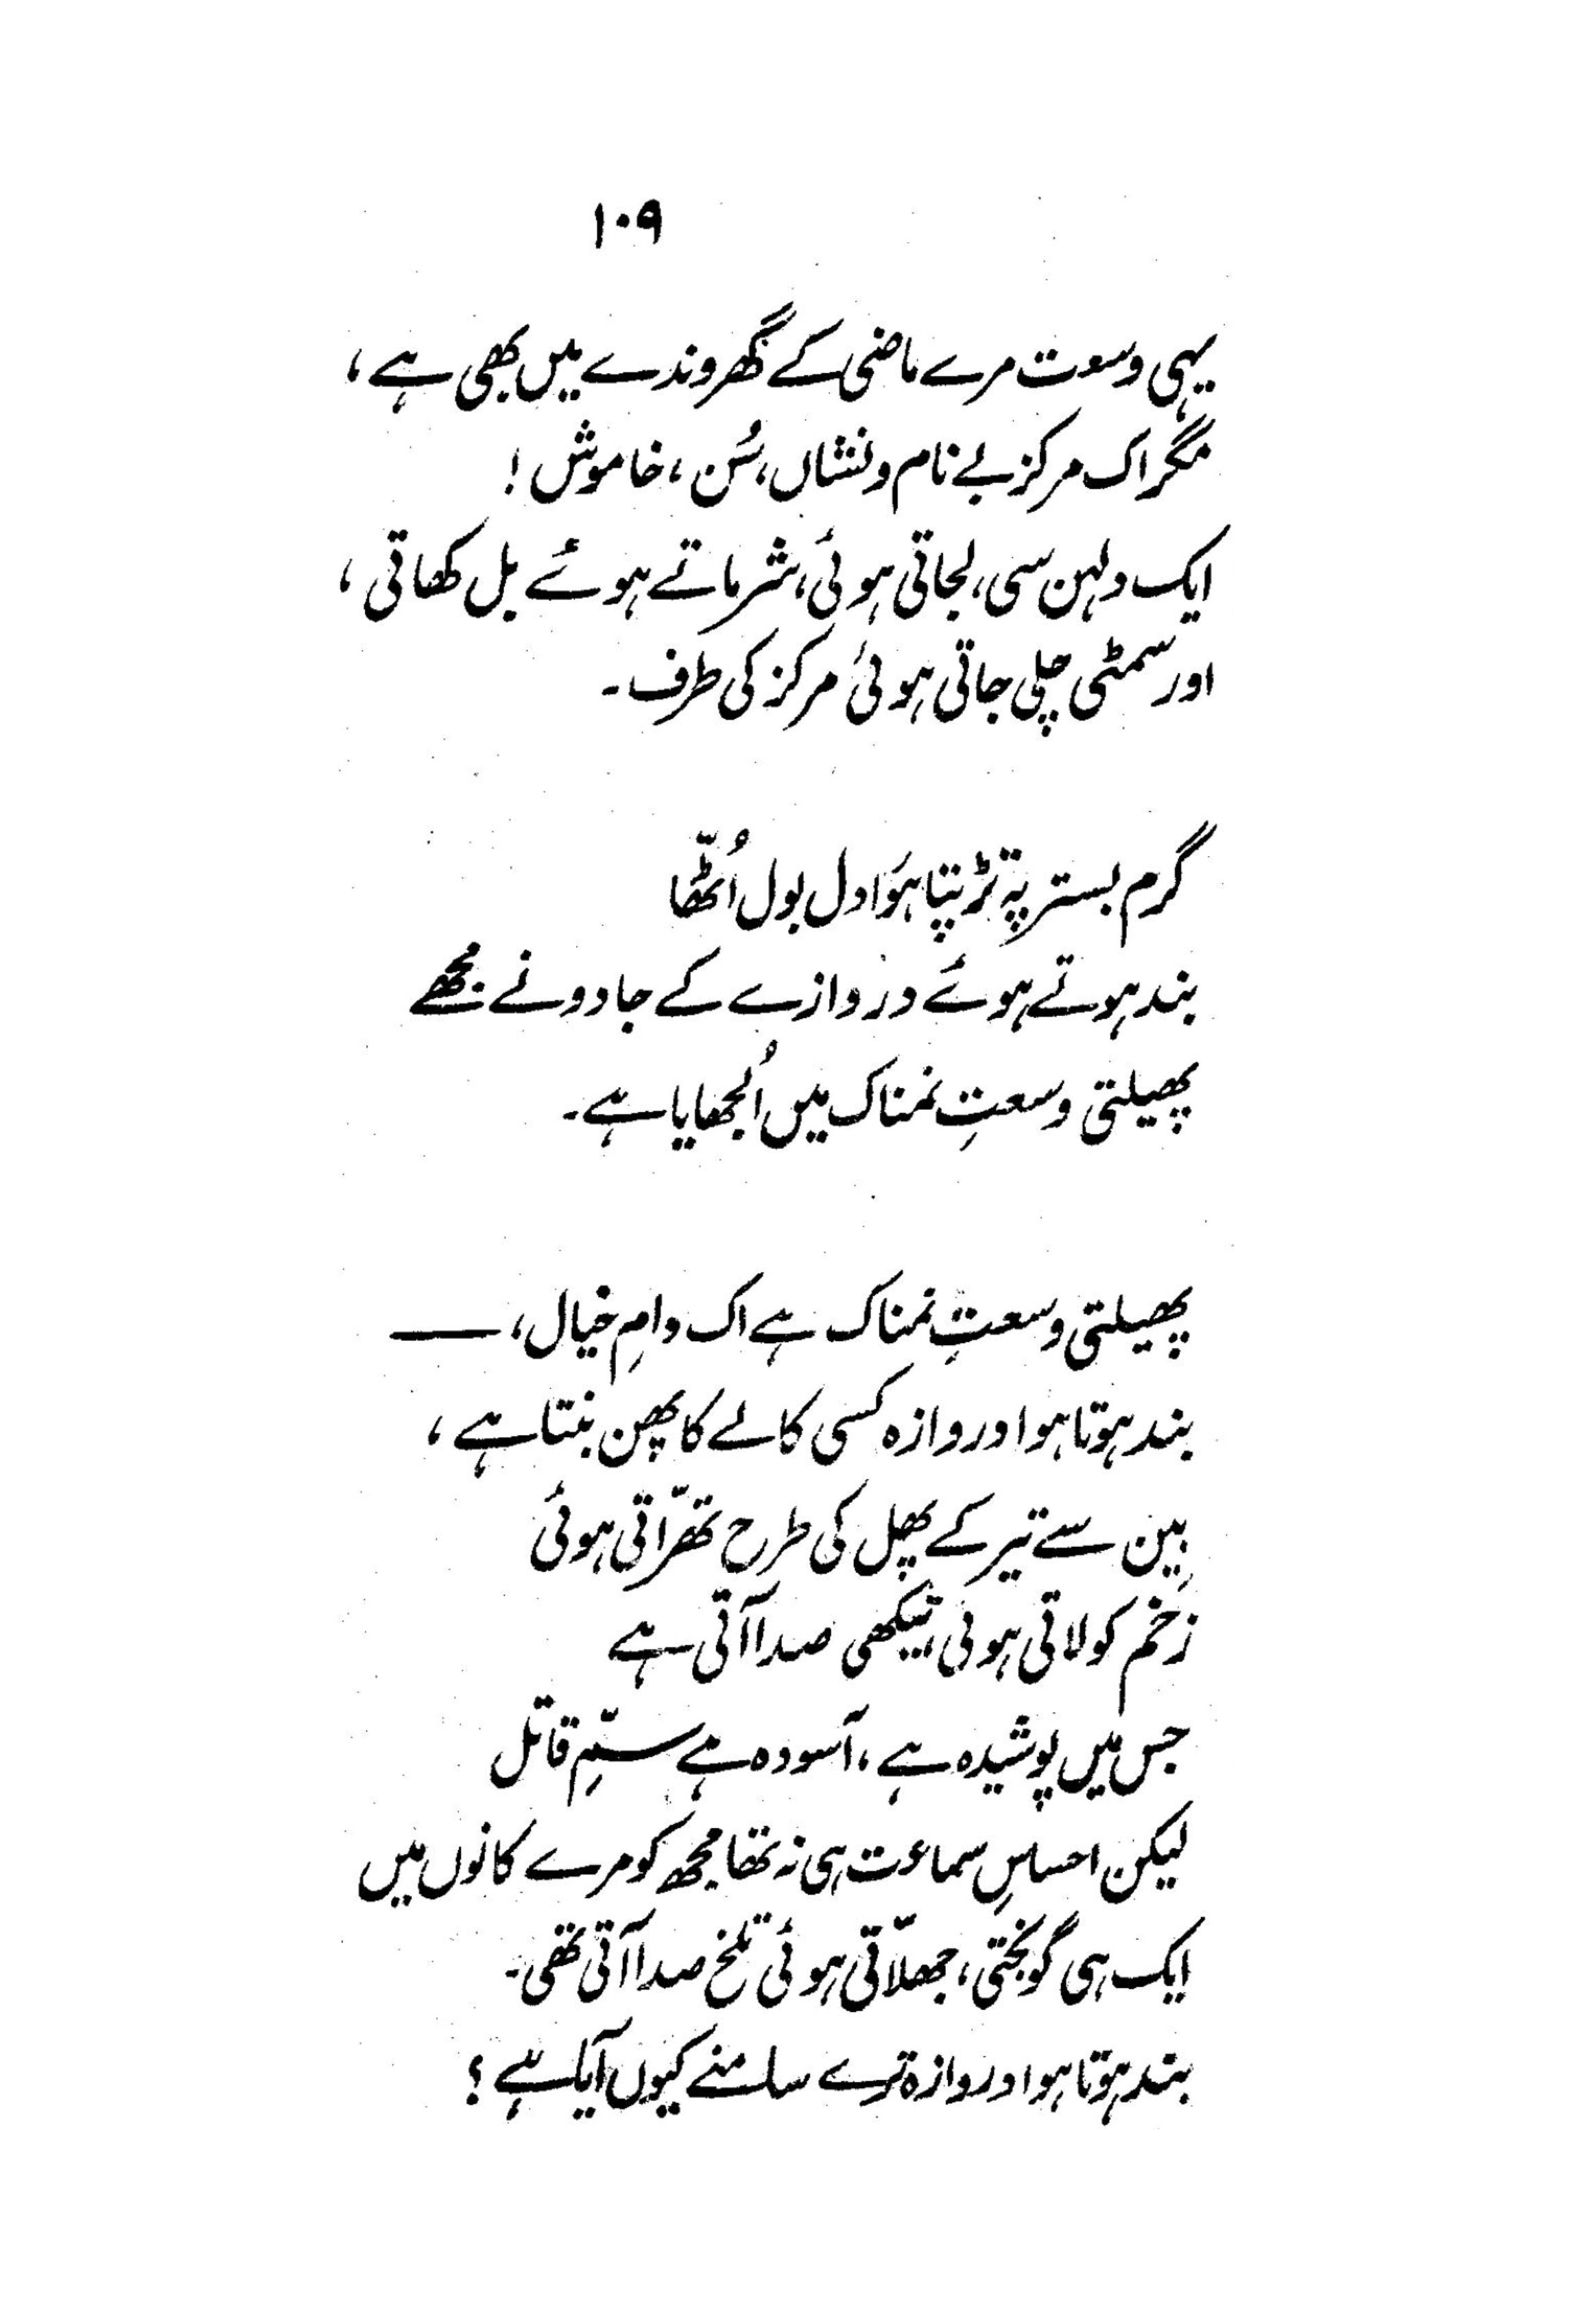 ۱۰۹
یہی وسعت مرے ماضی کے گھروندے میں بھی ہے،
مگر اک مرکز بے نام و نشاں، سُن، خاموش!
ایک دلہن سی، لجاتی ہوئی، شرماتے ہوئے بل کھاتی،
اور سمٹی چلی جاتی ہوئی مرکز کی طرف۔
گرم بستر پہ تڑپتا ہؤا دل بول اُٹھّا
بند ہوتے ہوئے دروازے کے جادو نے مجھے
پھیلتی وسعتِ نمناک میں اُلجھایا ہے۔
پھیلتی وسعتِ نمناک ہے اک دامِ خیال، ——
بند ہوتا ہوا دروازہ کسی کالے کا پھن بنتا ہے،
بِین سے تیر کے پھل کی طرح تھرّاتی ہوئی
زخم کو لاتی ہوئی تیکھی صدا آتی ہے
جس میں پوشیدہ ہے، آسودہ ہے سمِّ قاتل
لیکن احساسِ سماعت ہی نہ تھا مجھ کو مرے کانوں میں
ایک ہی گونجتی، جھلّاتی ہوئی تلخ صدا آتی تھی۔
بند ہوتا ہوا دروازہ ترے سامنے کیوں آیا ہے؟